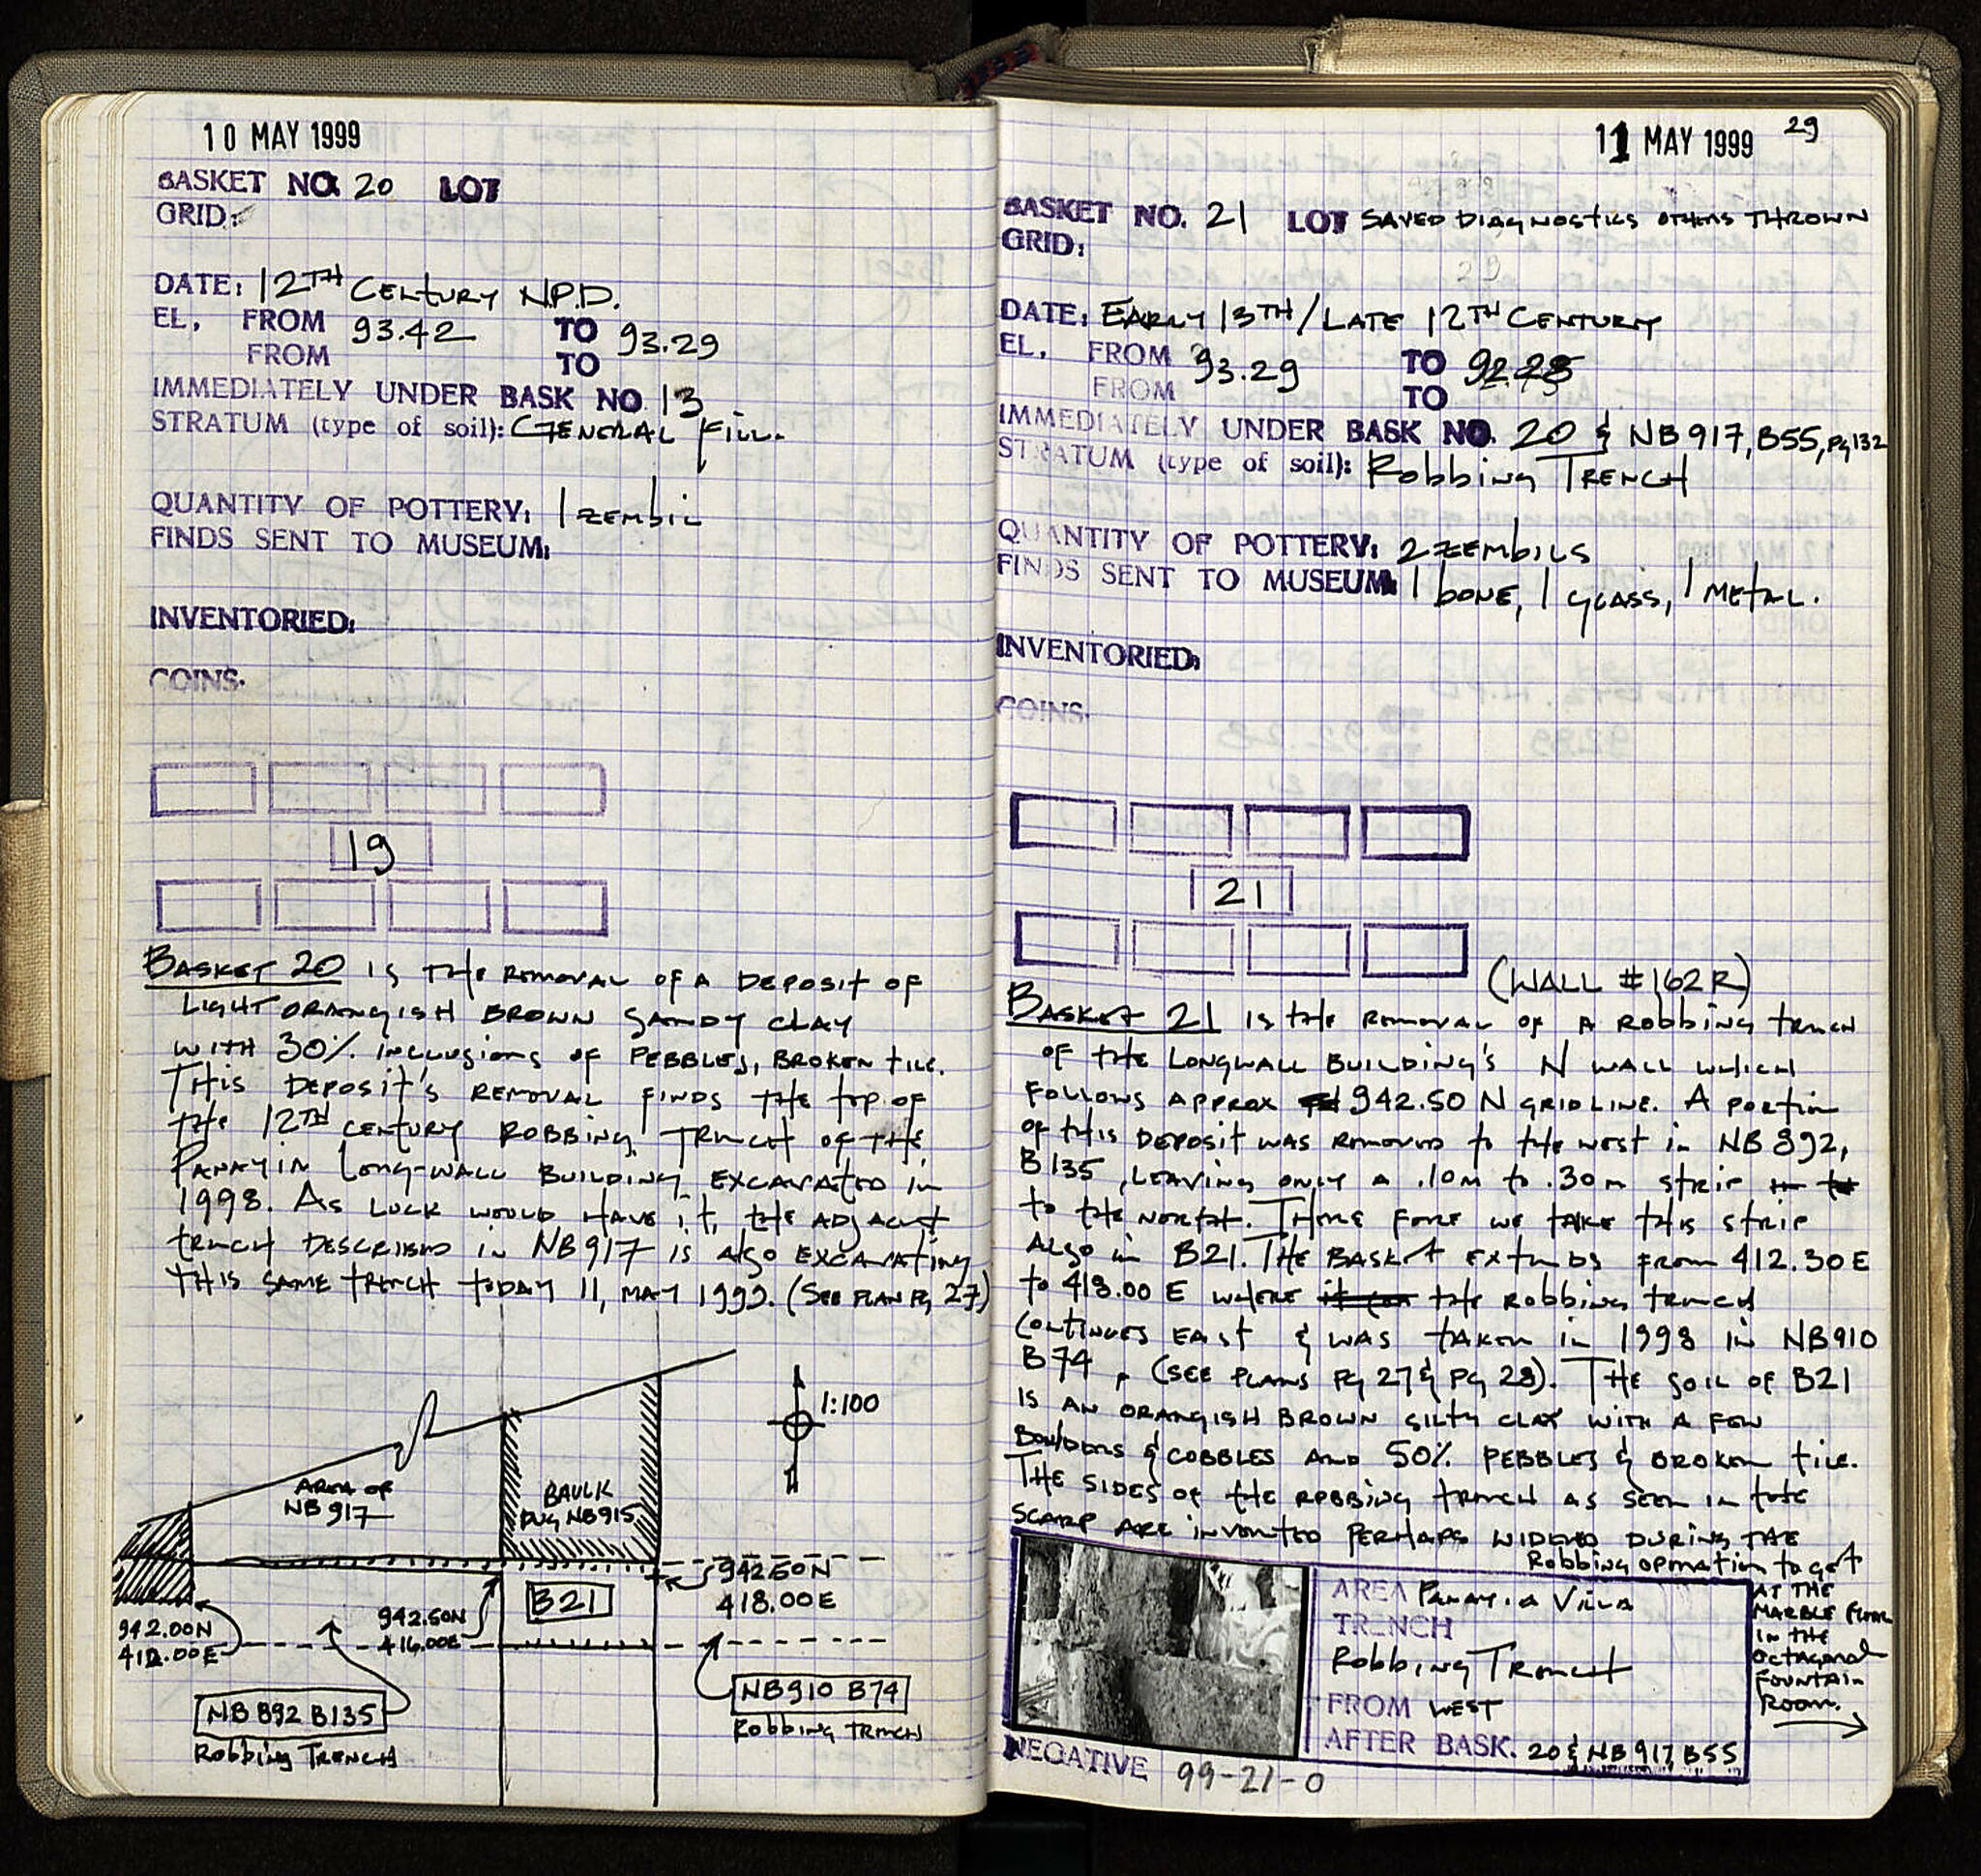 10 MAY 1999
BASKET NO. 20 LOT
GRID:
DATE: 12TH CENTURY N.P.D.
EL. FROM 93.42 TO 93.29
FROM TO
IMMEDIATELY UNDER BASK NO 13
STRATUM (type of soil): GENERAL FILL.
QUANTITY OF POTTERY: 1 ZEMBIL
FINDS SENT TO MUSEUM:
INVENTORIED:
COINS:
19
BASKET 20 IS THE REMOVAL OF A DEPOSIT OF
LIGHT ORANGISH BROWN SANDY CLAY
WITH 30% INCLUSIONS OF PEBBLES, BROKEN TILE.
THIS DEPOSIT'S REMOVAL FINDS THE TOP OF
THE 12TH CENTURY ROBBING TRENCH OF THE
PANAYIA LONG-WALL BUILDING EXCAVATED IN
1998. AS LUCK WOULD HAVE IT, THE ADJACENT
TRENCH DESCRIBED IN NB917 IS ALSO EXCAVATING
THIS SAME TRENCH TODAY 11, MAY 1999. (SEE PLAN Pg 27)
1:100
AREA OF
NB 917
BAULK
DUG NB915
B21
942.50N
418.00E
942.50N
416.00E
942.00N
412.00E
NB 892 B135
Robbing TRENCH
NB910 B74
Robbing TRENCH
29
11 MAY 1999
BASKET NO. 21 LOT SAVED DIAGNOSTICS OTHERS THROWN
GRID:
DATE: EARLY 13TH/LATE 12TH CENTURY
EL. FROM 93.29 TO 92.28
FROM TO
IMMEDIATELY UNDER BASK NO. 20 & NB917, B55, Pg 132
STRATUM (type of soil): Robbing TRENCH
QUANTITY OF POTTERY: 2 ZEMBILS
FINDS SENT TO MUSEUM: 1 BONE, 1 GLASS, 1 METAL.
INVENTORIED:
COINS:
21
(WALL #162R)
BASKET 21 IS THE REMOVAL OF A ROBBING TRENCH
OF THE LONGWALL BUILDING'S N WALL WHICH
FOLLOWS APPROX 942.50 N GRIDLINE. A PORTION
OF THIS DEPOSIT WAS REMOVED TO THE WEST IN NB 892,
B135, LEAVING ONLY A .10M TO .30M STRIP
TO THE NORTH. THERE FORE WE TAKE THIS STRIP
ALSO IN B21. THE BASKET EXTENDS FROM 412.30E
TO 418.00 E WHERE THE ROBBING TRENCH
CONTINUES EAST & WAS TAKEN IN 1998 IN NB910
B74, (SEE PLANS Pg 27 & Pg 28). THE SOIL OF B21
IS AN ORANGISH BROWN SILTY CLAY WITH A FEW
BOULDERS & COBBLES AND 50% PEBBLES & BROKEN TILE.
THE SIDES OF THE ROBBING TRENCH AS SEEN IN THE
SCARP ARE INVERTED PERHAPS WIDENED DURING THE
Robbing OPERATION TO GET
AT THE
MARBLE FLOOR
IN THE
OCTAGONAL
FOUNTAIN
ROOM.
AREA PANAYIA VILLA
TRENCH
Robbing TRENCH
FROM WEST
AFTER BASK. 20 & NB 917, B55
NEGATIVE 99-21-0